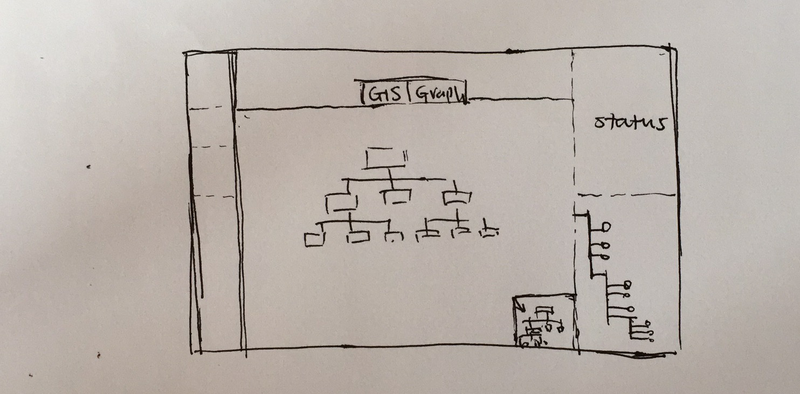 GIS Graph
status